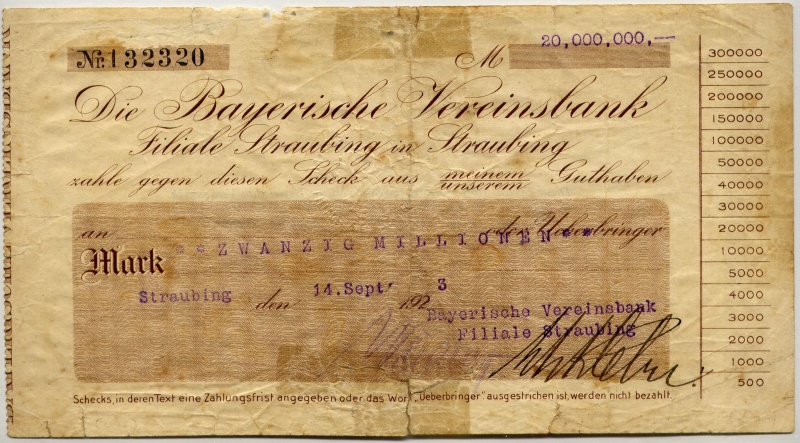 Nr. 132320 M 20,000,000,—
Die Bayerische Vereinsbank
Filiale Straubing in Straubing
zahle gegen diesen Scheck aus meinem unserem Guthaben
an oder Ueberbringer
Mark **ZWANZIG MILLIONEN**
Straubing den 14.Sept. 1923
Bayerische Vereinsbank
Filiale Straubing
Schecks, in deren Text eine Zahlungsfrist angegeben oder das Wort „Ueberbringer" ausgestrichen ist, werden nicht bezahlt.
300000
250000
200000
150000
100000
50000
40000
30000
20000
10000
5000
4000
3000
2000
1000
500